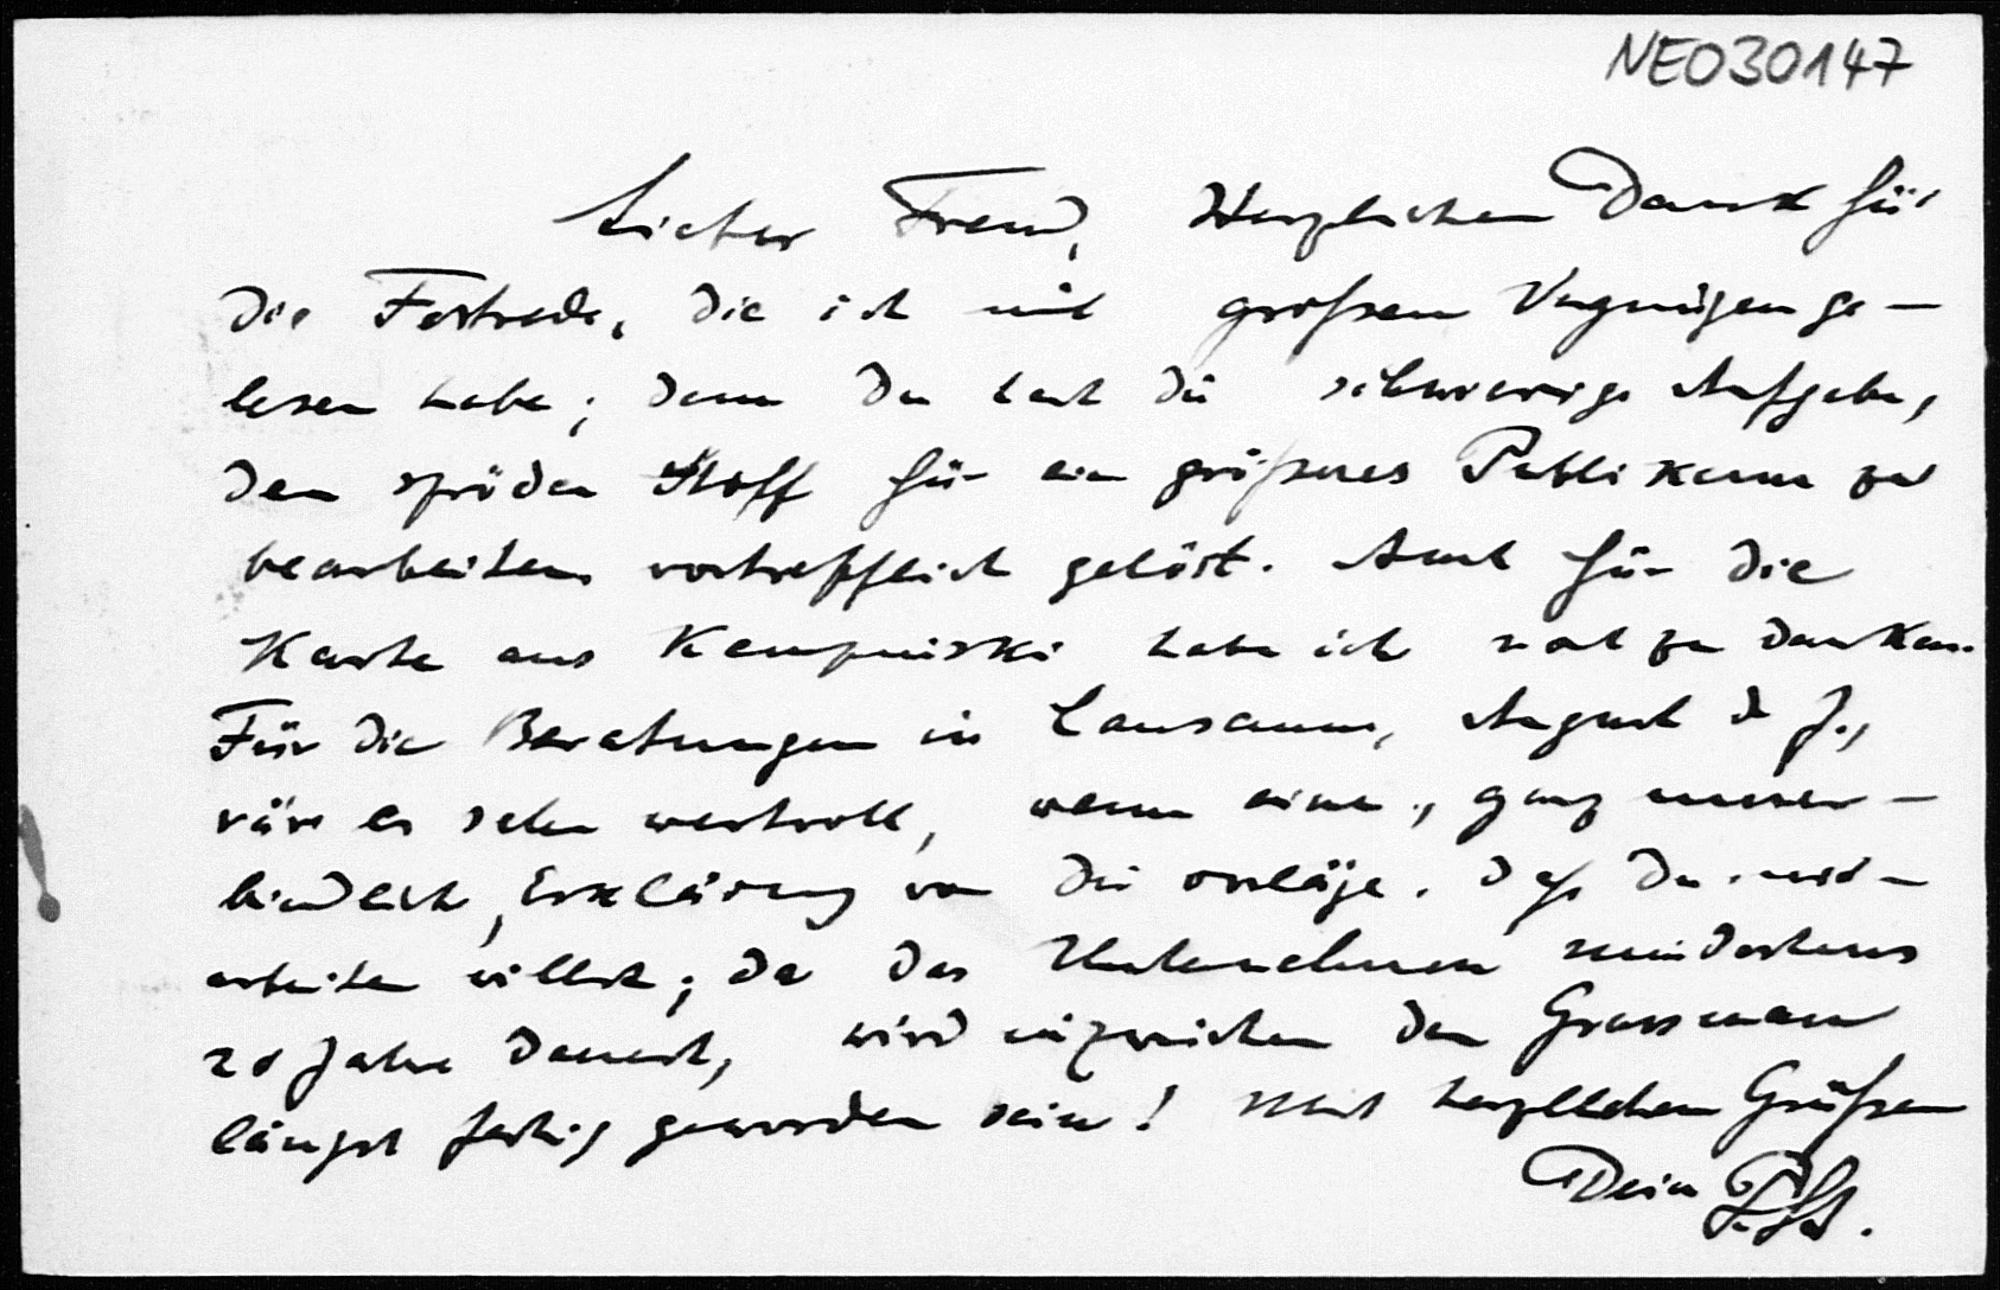 NEO30147
Lieber Freund, Herzlichen Dank für
die Festrede, die ich mit großem Vergnügen ge-
lesen habe; denn Du hast die schwierige Aufgabe,
den spröden Stoff für ein größeres Publikum zu
bearbeiten vortrefflich gelöst. Auch für die
Karte aus Kempinski habe ich noch zu danken.
Für die Beratungen in Lausanne, August d J.,
wäre es sehr wertvoll, wenn eine, ganz unver-
bindliche, Erklärung von Dir vorläge, daß Du mit-
arbeiten willst; da das Unternehmen mindestens
20 Jahre dauert, wird inzwischen der Grassmann
längst fertig geworden sein! Mit herzlichen Grüßen
Dein P. St.